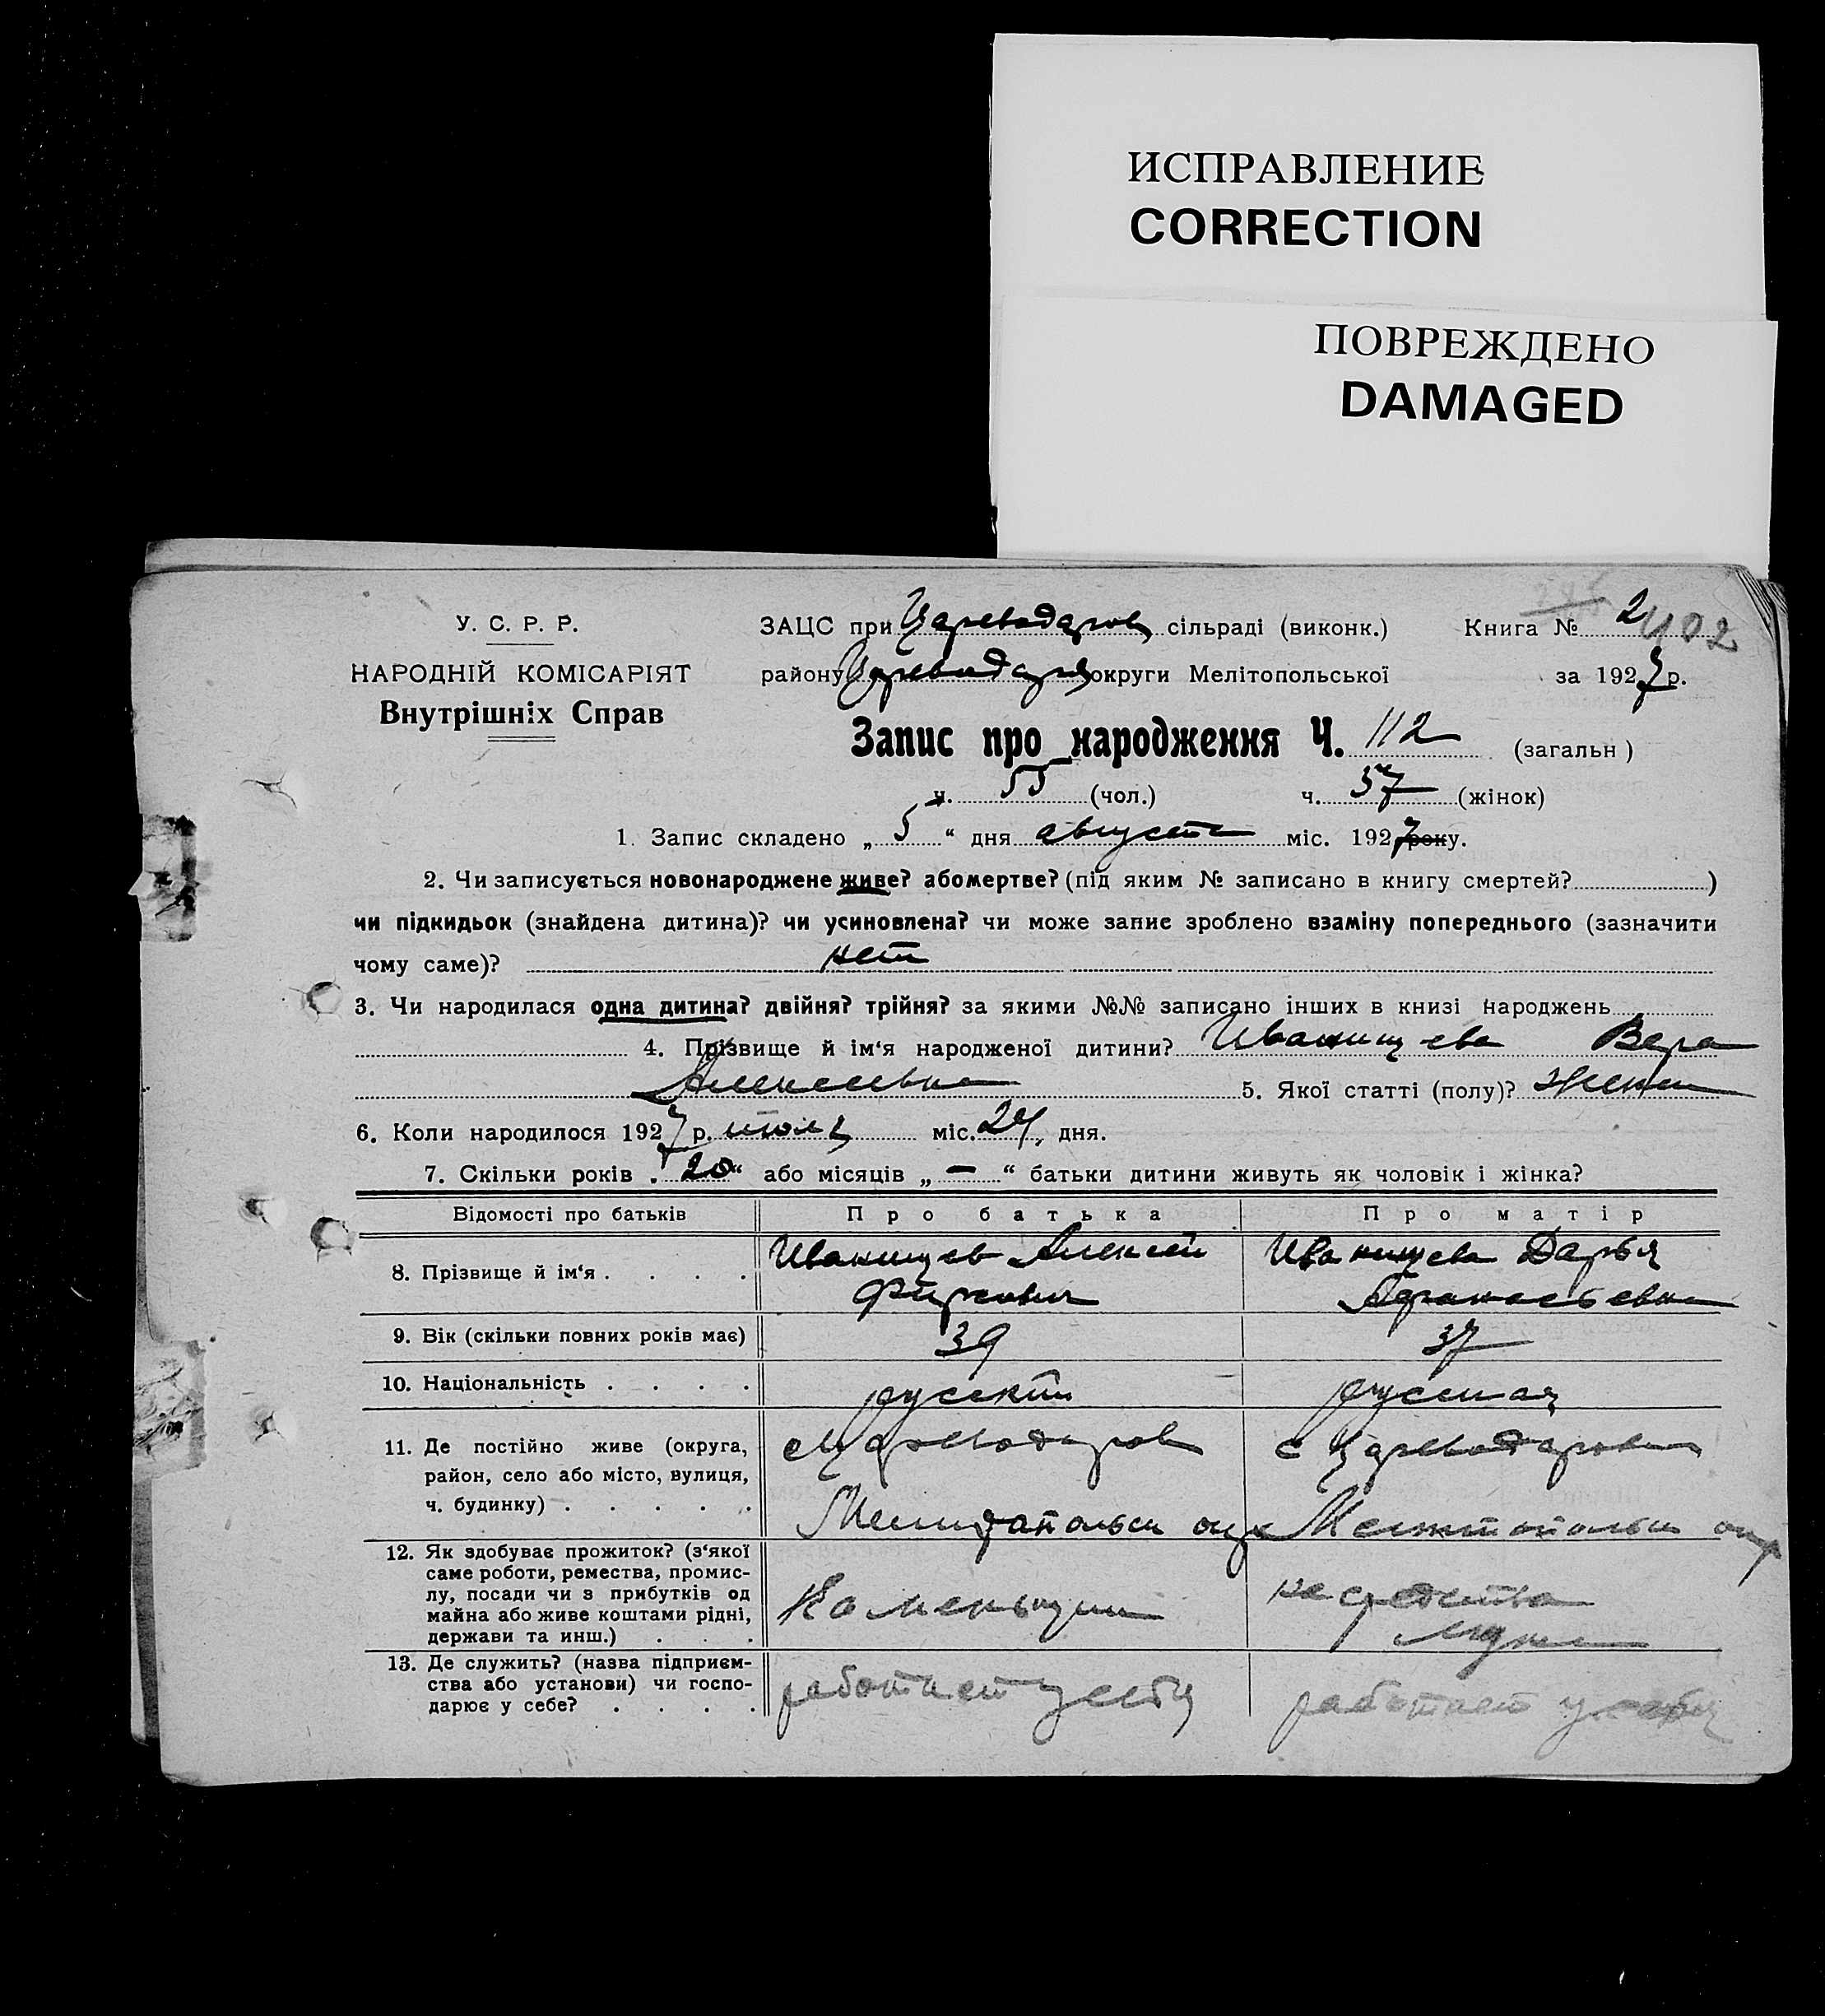 ИСПРАВЛЕНИЕ
CORRECTION
ПОВРЕЖДЕНО
DAMAGED
У. С. Р. Р.
НАРОДНІЙ КОМІСАРІЯТ
Внутрішніх Справ
ЗАЦС при Цареводаров сільраді (виконк.) Книга № 2 402
району Цареводар округи Мелітопольської за 1927 р.
Запис про народження Ч. 112 (загальн)
ч. 55 (чол.) ч. 57 (жінок)
1. Запис складено „5“ дня августа міс. 1927 року.
2. Чи записується новонароджене живе? або мертве? (під яким № записано в книгу смертей? )
чи підкидьок (знайдена дитина)? чи усиновлена? чи може запис зроблено взаміну попереднього (зазначити
чому саме)? нет
3. Чи народилася одна дитина? двійня? трійня? за якими №№ записано інших в книзі народжень
4. Прізвище й ім‘я народженої дитини? Иванищева Вера
Алексеевна 5. Якої статті (полу)? женск
6. Коли народилося 1927 р. июля міс. 24, дня.
7. Скільки років „20“ або місяців „—“ батьки дитини живуть як чоловік і жінка?
Відомості про батьків Про батька Про матір
8. Прізвище й ім‘я . . . . Иванищев Алексей Иванищева Дарья
Афанасьевна
9. Вік (скільки повних років має) 39 37
10. Національність . . . . русский русская
11. Де постійно живе (округа,
район, село або місто, вулиця,
ч. будинку) . . . . .
с Цареводаров с Цареводаровка
Мелитопольск окр Мелитопольск окр
12. Як здобуває прожиток? (з‘якої
саме роботи, ремества, промис-
лу, посади чи з прибутків од
майна або живе коштами рідні,
держави та инш.) . . .
Каменьщик на средства
мужа
13. Де служить? (назва підприєм-
ства або установи) чи госпо-
дарює у себе? . . . .
работает у себя работает у себя